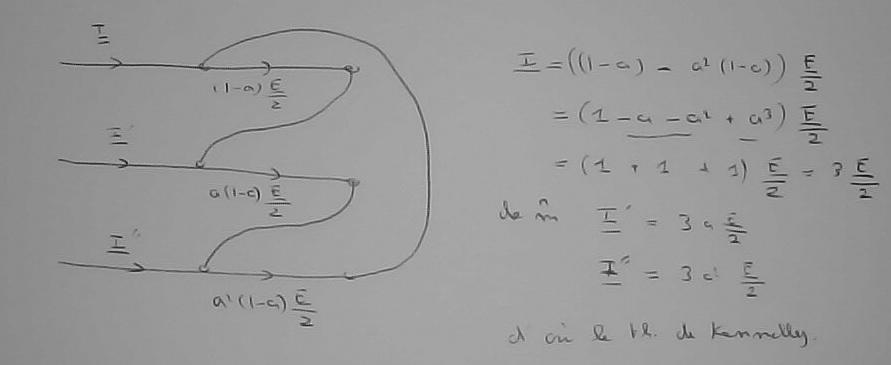 I
(1-a) E/2
I'
a(1-a) E/2
I"
a²(1-a) E/2
I = ((1-a) - a²(1-a)) E/2
= (1 - a - a² + a³) E/2
= (1 + 1 + 1) E/2 = 3 E/2
de m̂ I' = 3 a E/2
I" = 3 a² E/2
d'où le th. de Kennelly.